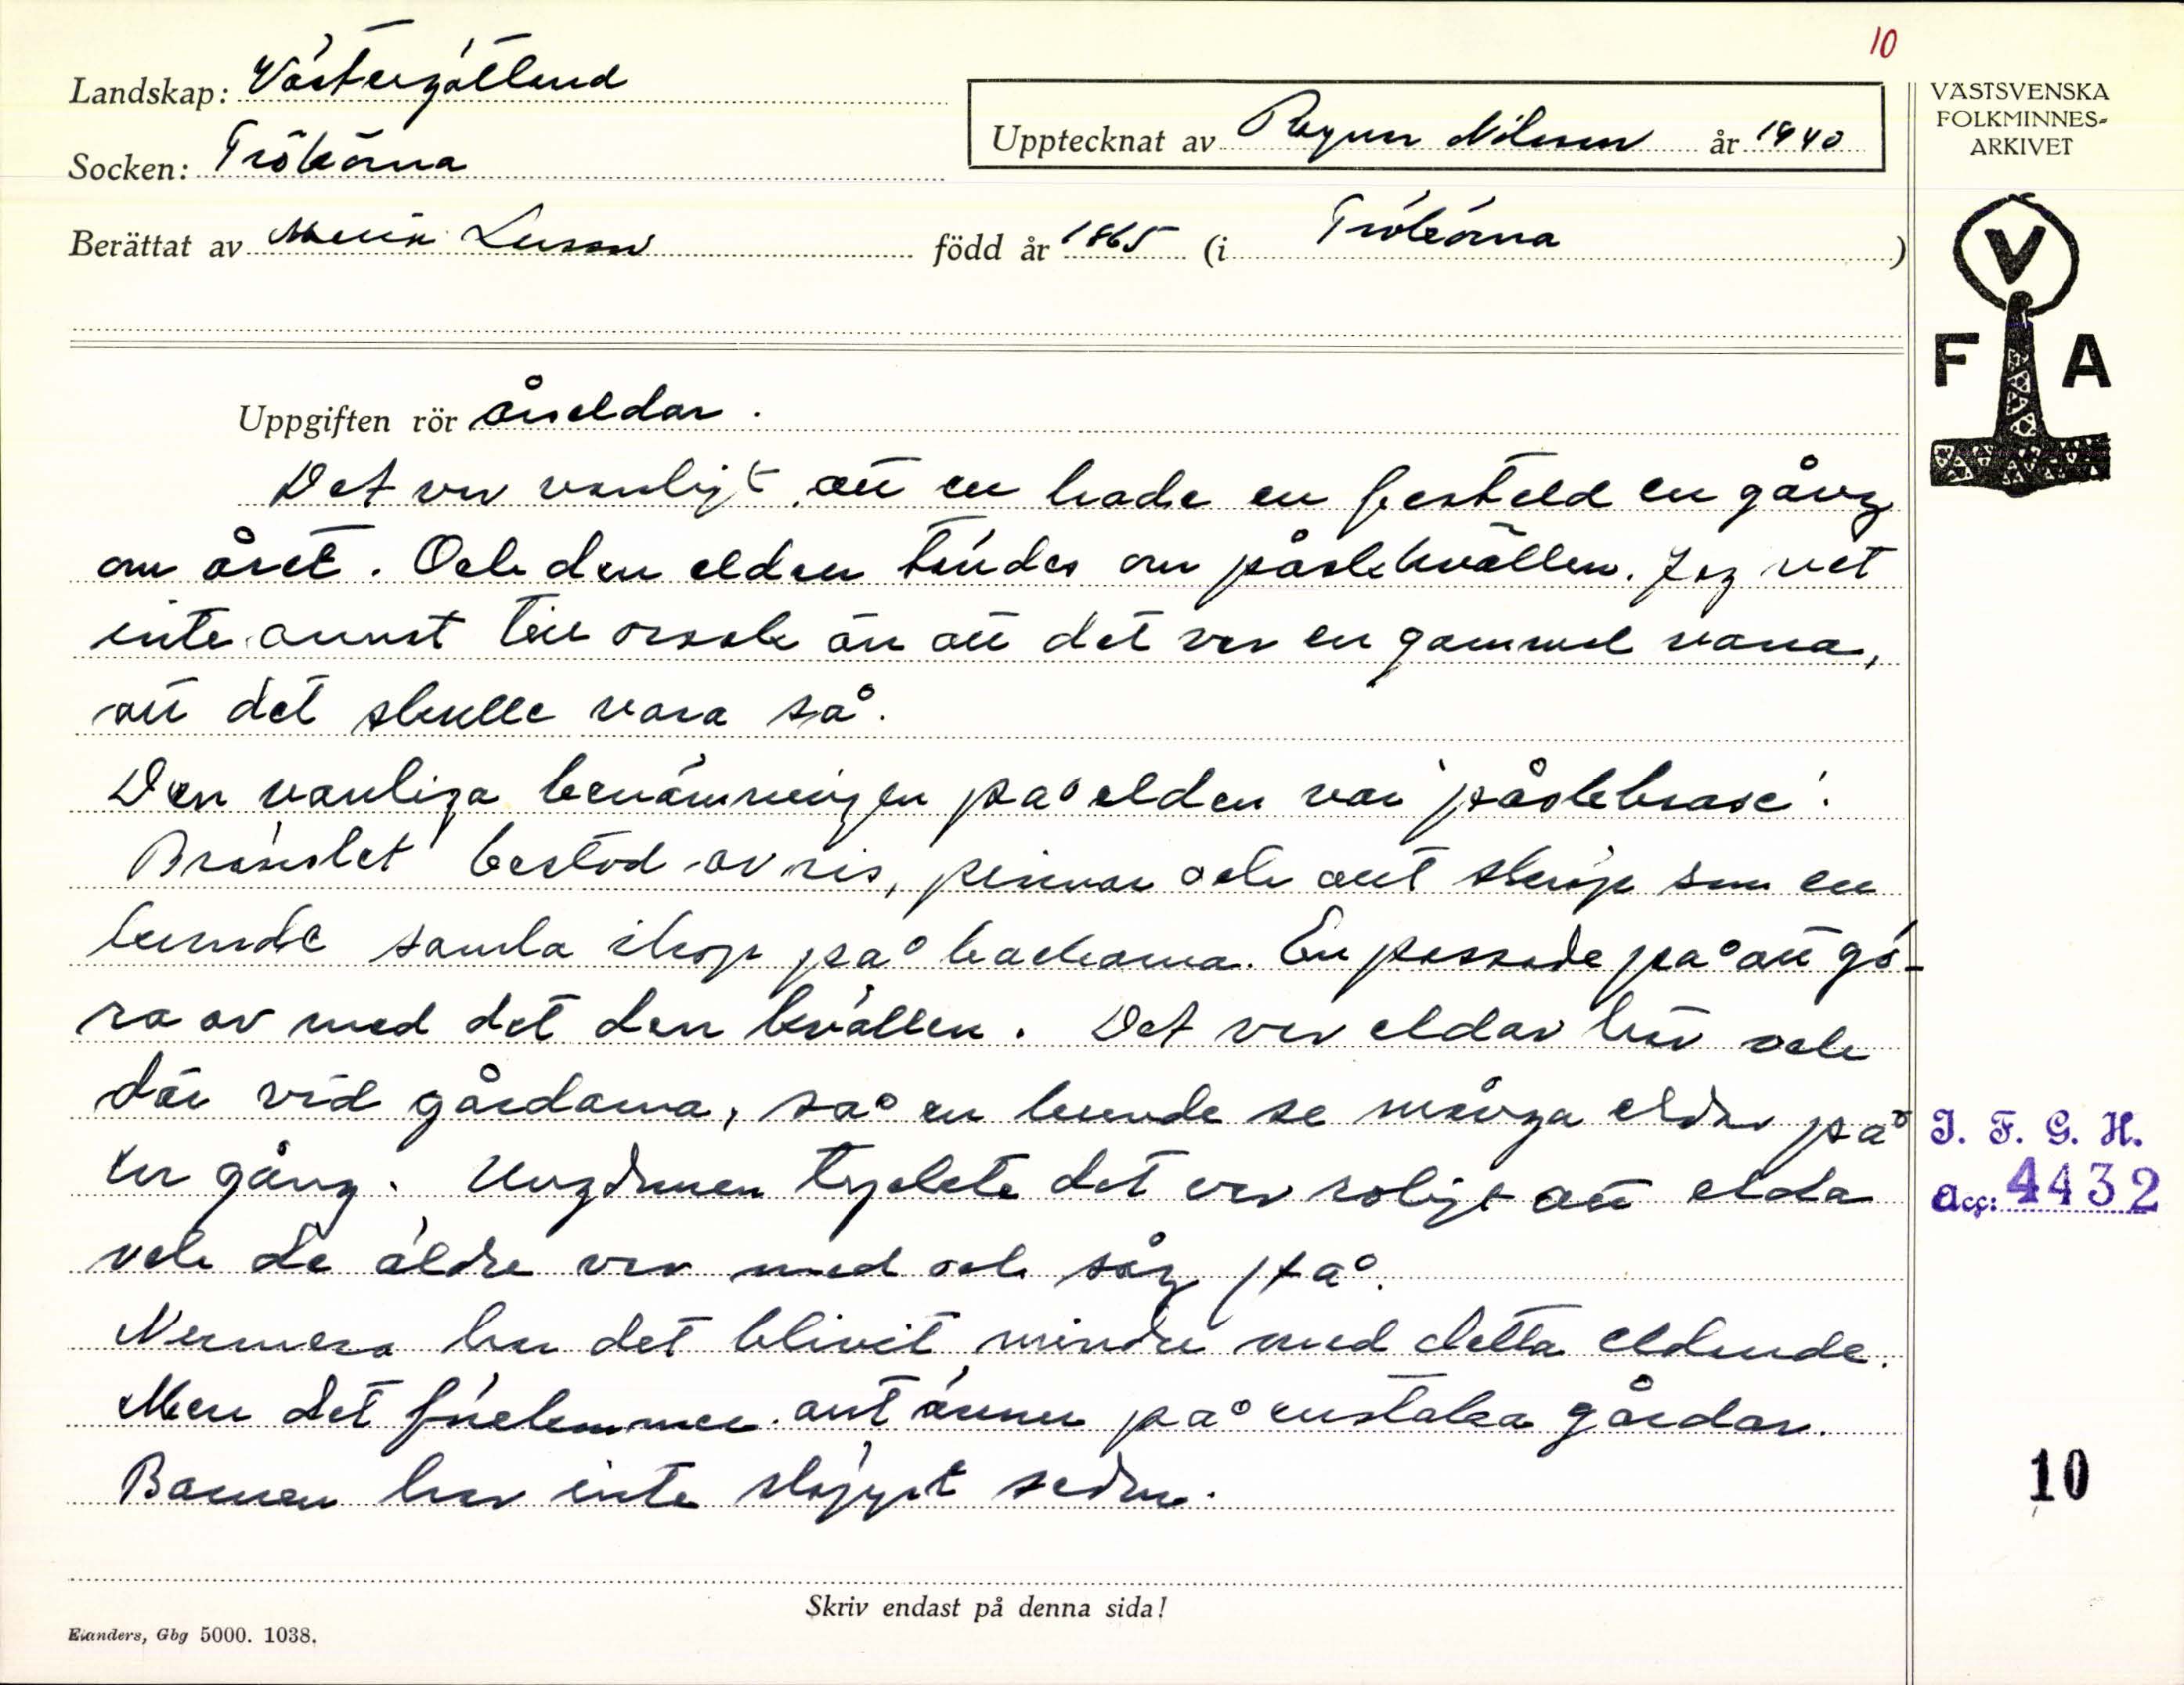 10
Landskap: Västergötland
VÄSTSVENSKA
FOLKMINNES-
ARKIVET
Upptecknat av Ragnar Nilsson år 1940
Socken: Trökörna
Berättat av Maria Larsson född år 1865 (i Trökörna)
V
F A
Uppgiften rör årseldar.
Det var vanligt att en hade en festeld en gång
om året. Och den elden tändes om påskkvällen. Jag vet
inte annat till orsak än att det var en gammal vana,
att det skulle vara så.
Den vanliga benämningen på elden var 'påskbrase'.
Bränslet bestod av ris, pinnar och allt skräp som en
kunde samla ihop på backarna. En passade på att gö-
ra av med det den kvällen. Det var eldar här och
där vid gårdarna, så en kunde se många eldar på
en gång. Ungdomen tyckte det var roligt att elda
och de äldre var med och såg på.
Numera har det blivit mindre med detta eldande.
Men det förekommer allt ännu på enstaka gårdar.
Barnen har inte släppt seden.
I. F. G. H.
Acc: 4432
10
Skriv endast på denna sida!
Elanders, Gbg 5000. 1038.